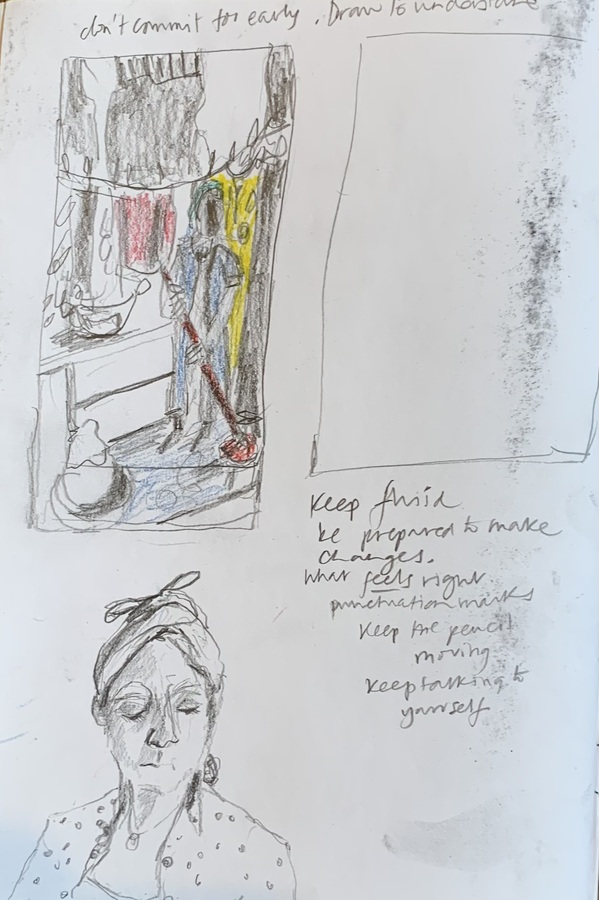 don't commit too early. Draw to understand
Keep fluid
be prepared to make
changes.
What feels right
punctuation marks
Keep the pencil
moving
keep talking to
yourself